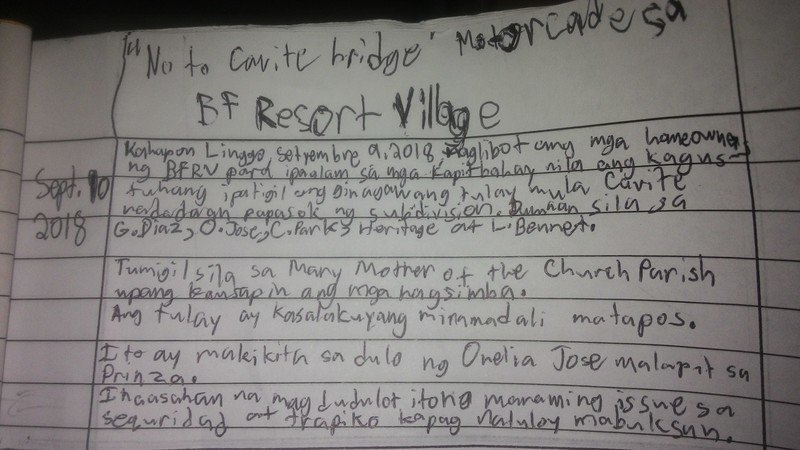 "No to Cavite bridge" Motorcade sa
BF Resort Village
Kahapon Linggo setyembre 9, 2018 naglibot ang mga homeowners
ng BFRV para ipaalam sa mga kapitbahay nila ang kagus-
Sept. 10 tuhang ipatigil ang ginagawang tulay mula Cavite
nadadaan papasok ng subdivision. Dumaan sila sa
2018 G. Diaz, O. Jose, C. Park, Heritage at L. Bennet.
Tumigil sila sa Mary Mother of the Church Parish
upang kausapin ang mga nagsimba.
Ang tulay ay kasalakuyang minamadali matapos.
Ito ay makikita sa dulo ng Onelia Jose malapit sa
Prinza.
Inaasahan na magdudulot itong maraming issue sa
sequridad at trapiko kapag natuloy mabuksan.